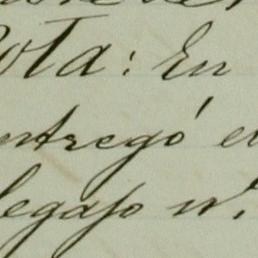 Nota: En
entregó el
legajo nº.